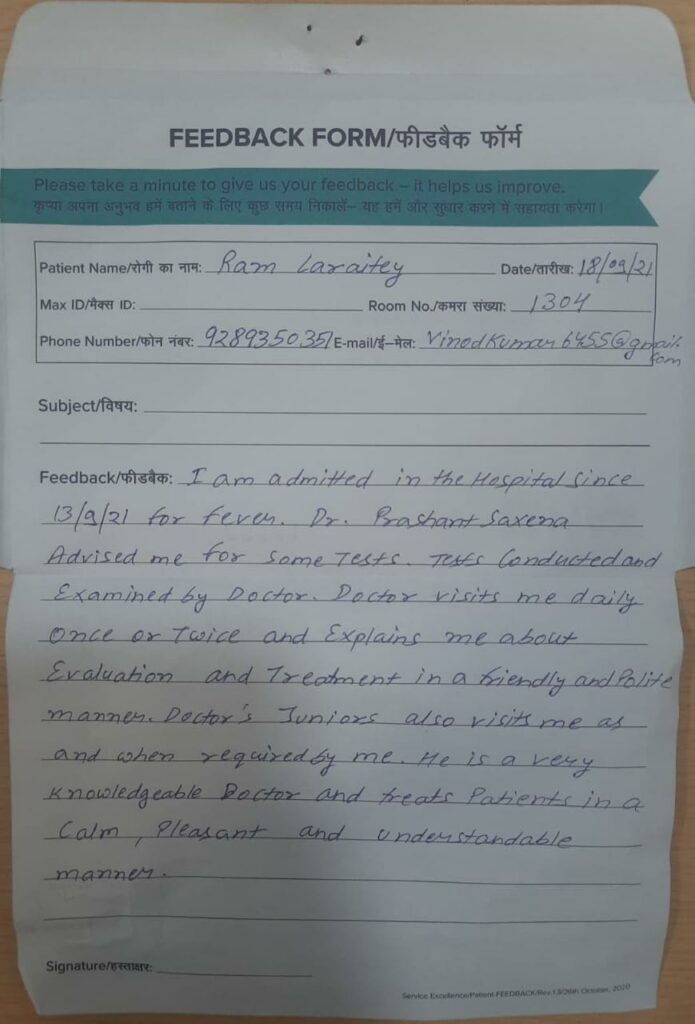 FEEDBACK FORM/फीडबैक फॉर्म
Please take a minute to give us your feedback – it helps us improve.
कृप्या अपना अनुभव हमें बताने के लिए कुछ समय निकालें– यह हमें और सुधार करने में सहायता करेगा।
Patient Name/रोगी का नाम: Ram Laraitey Date/तारीख: 18/09/21
Max ID/मैक्स ID: Room No./कमरा संख्या: 1304
Phone Number/फोन नंबर: 9289350351 E-mail/ई–मेल: Vinodkumar6455@gmail.
com
Subject/विषय:
Feedback/फीडबैक: I am admitted in the Hospital Since
13/9/21 for fever. Dr. Prashant Saxena
Advised me for some Tests. Tests Conducted and
Examined by Doctor. Doctor visits me daily
Once or Twice and Explains me about
Evaluation and Treatment in a friendly and Polite
manner. Doctor's Juniors also visits me as
and when required by me. He is a very
Knowledgeable Doctor and treats Patients in a
Calm, Pleasant and understandable
manner.
Signature/हस्ताक्षर:
Service Excellence/Patient-FEEDBACK/Rev.1.3/26th October, 2020